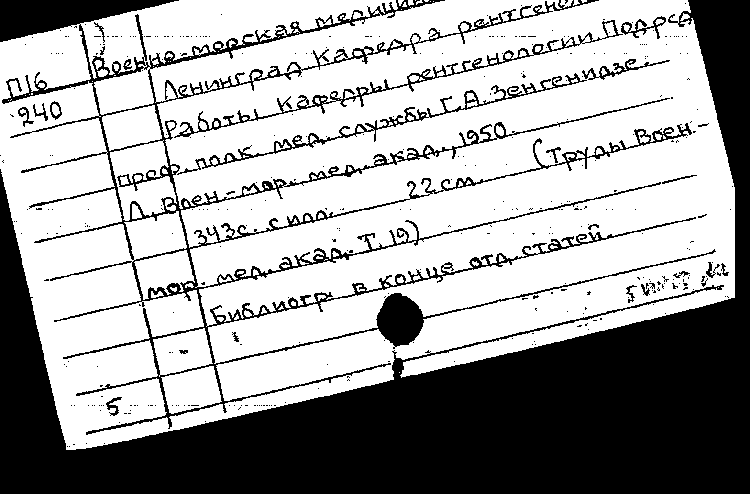 П16 Военно-морская медицин
240 Ленинград Кафедра рентгенол
Работы Кафедры рентгенологии. Под ред
проф. полк. мед. службы Г.А. Зенгенидзе.
Л., Воен.-мор. мед. акад., 1950.
343с. с илл. 22 см. (Труды Воен.-
мор. мед. акад. Т. 19)
Библиогр. в конце отд. статей.
5